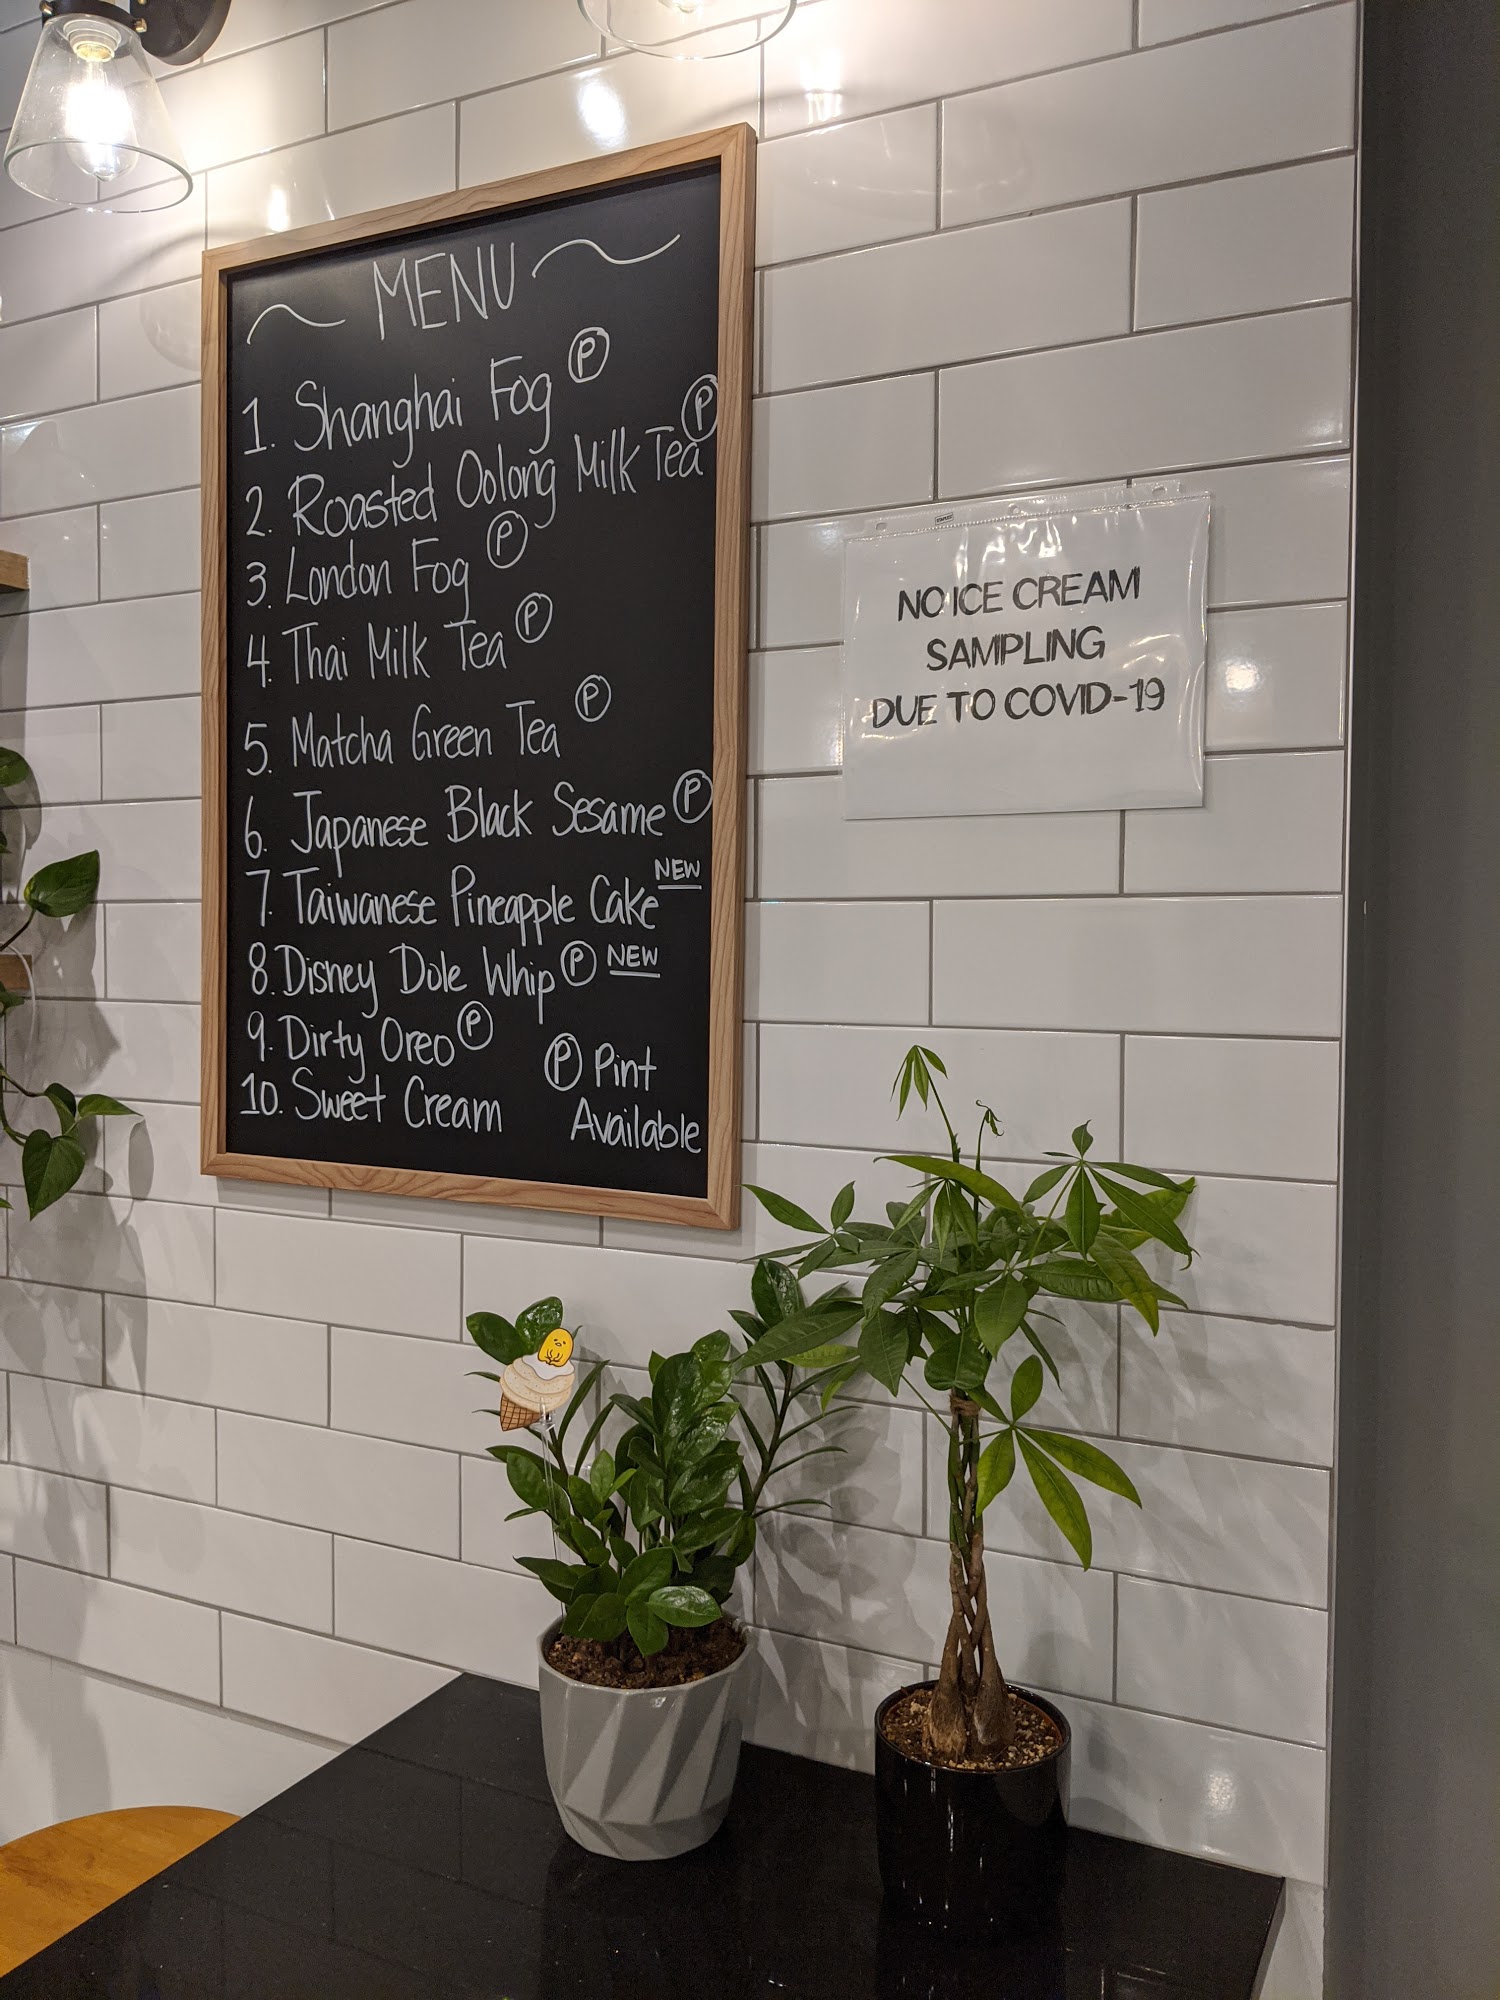 MENU
1. Shanghai Fog Ⓟ
2. Roasted Oolong Milk Tea Ⓟ
3. London Fog Ⓟ
4. Thai Milk Tea Ⓟ
5. Matcha Green Tea Ⓟ
6. Japanese Black Sesame Ⓟ
7. Taiwanese Pineapple Cake NEW
8. Disney Dole Whip Ⓟ NEW
9. Dirty Oreo Ⓟ
10. Sweet Cream
Ⓟ Pint
Available
NO ICE CREAM
SAMPLING
DUE TO COVID-19